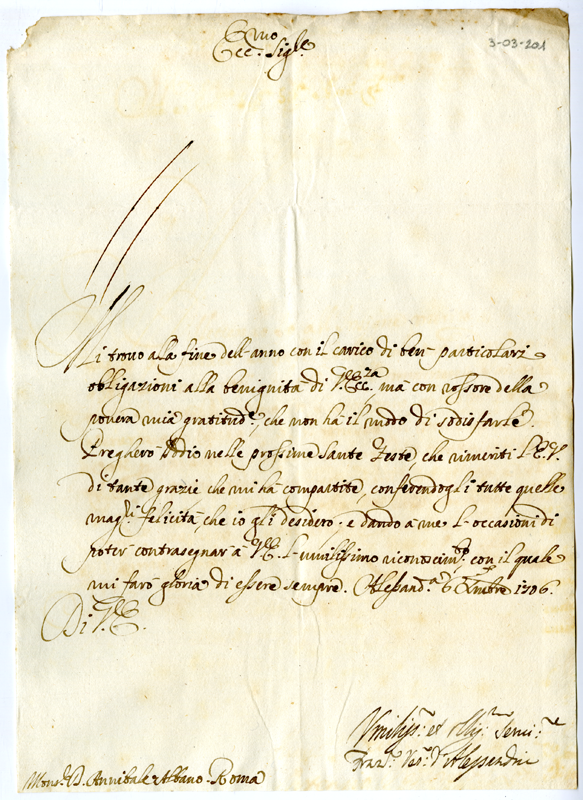 Emo
Ecc. Sigre
3-03-201
Mi trovo alla fine dell-anno con il carico di ben particolari
obligazioni alla benignità di V. Ecc.za ma con rossore della
povera mia gratitud.e che non ha il modo di sodisfarle.
Pregherò Iddio nelle prossime Sante Feste, che rimeriti l-E.V.
di tante grazie che mi ha compartite, conferendogli tutte quelle
mag.ri felicità che io gli desidero. e dando a me l-occasioni di
poter contrasegnar a V.E. l-umilissimo riconoscim.to con il quale
mi farò gloria di essere sempre. Alessand.a 6 Xmbre 1706.
Di V.E.
Umiliss.o et Serv.e
Ves.o d'Alessandria
Mons.r D. Annibale Albano. Roma